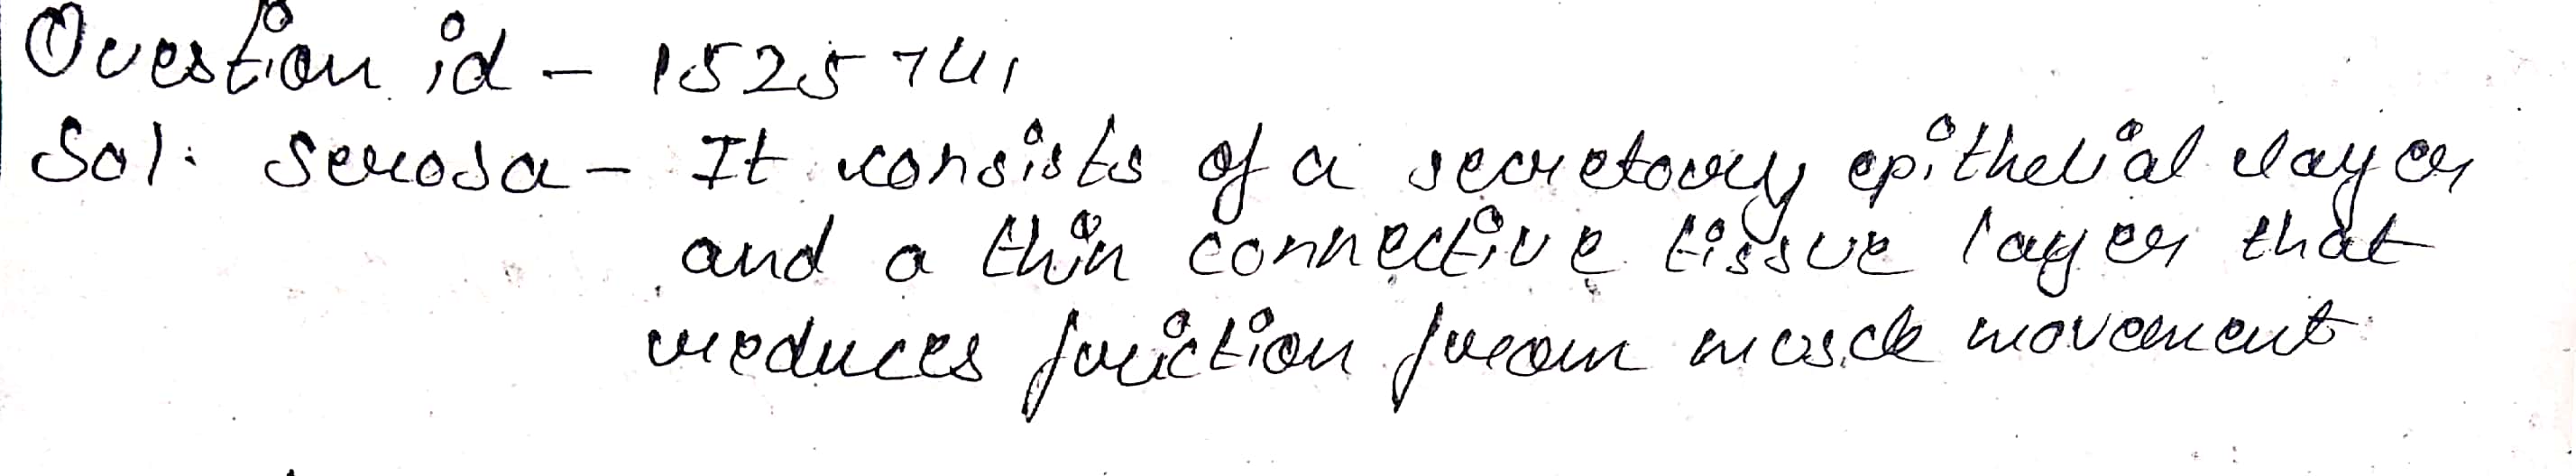 Question id - 1525741
Sol. Serosa - It consists of a secretory epithelial layer
and a thin connective tissue layer that
reduces friction from muscle movement